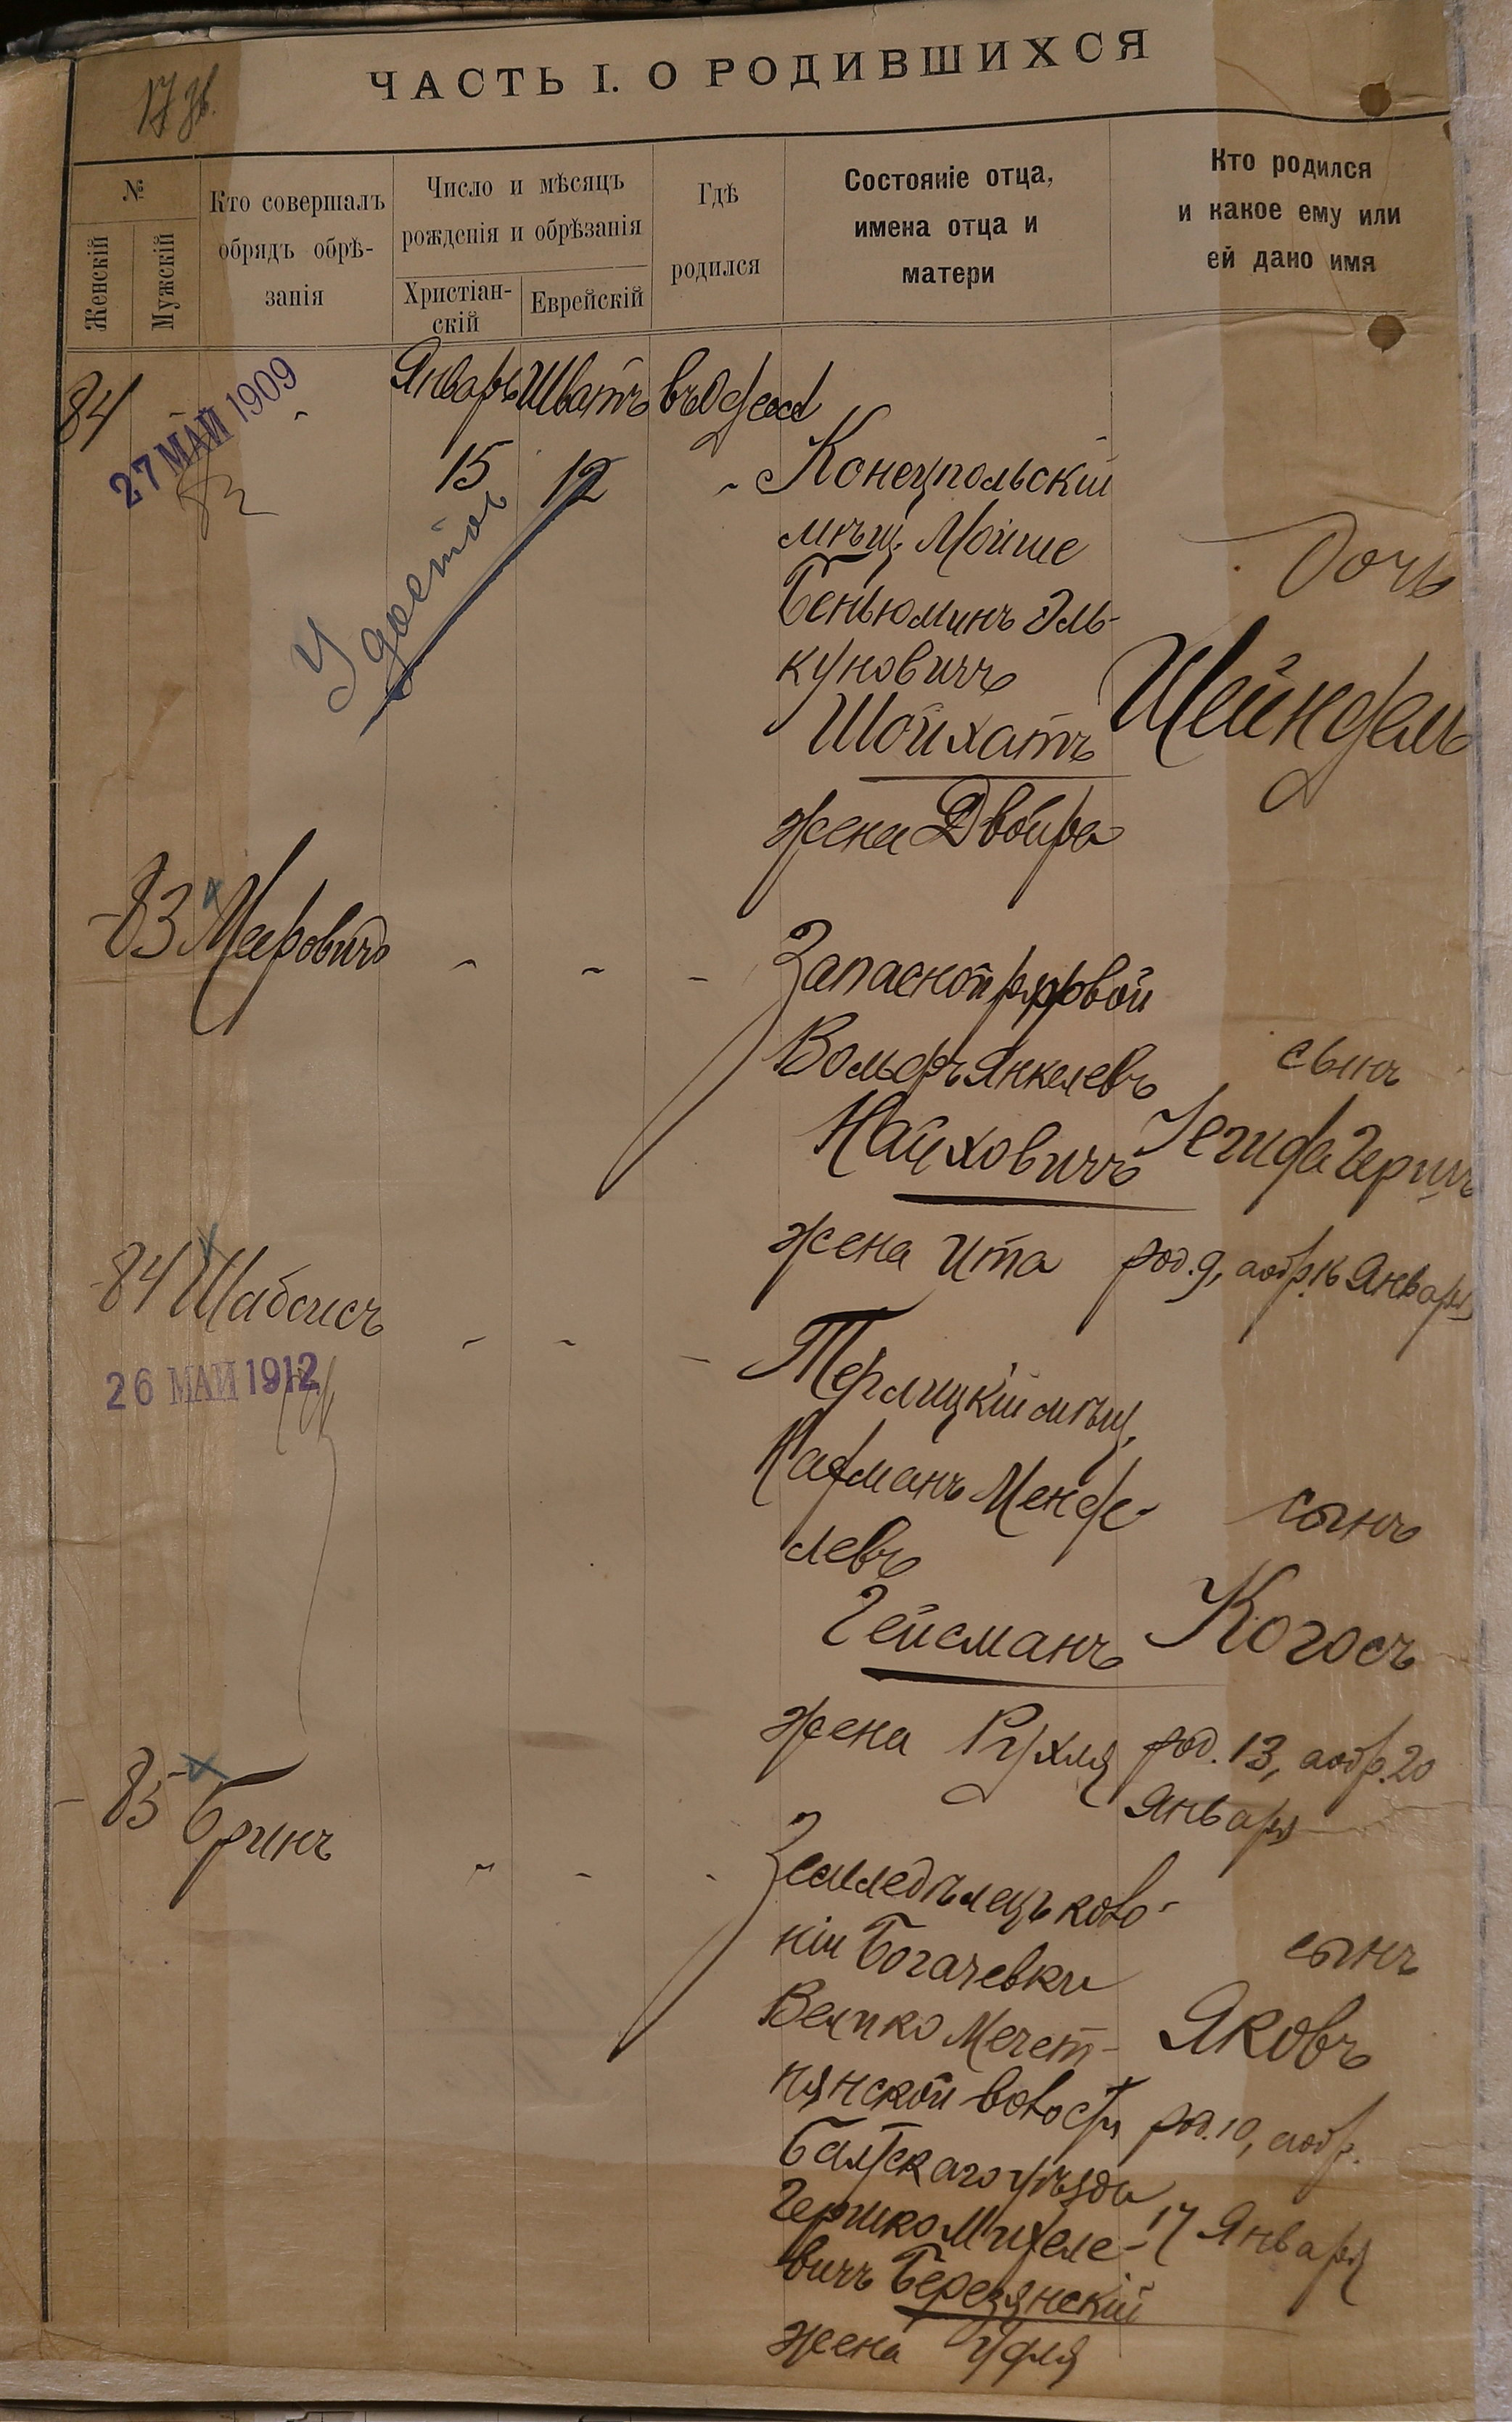 ЧАСТЬ I. О РОДИВШИХСЯ
№
Женскій
Мужскій
Кто совершалъ
обрядъ обрѣ-
занія
Число и мѣсяцъ
рожденія и обрѣзанія
Христіан-
скій
Еврейскій
Гдѣ
родился
Состояніе отца,
имена отца и
матери
Кто родился
и какое ему или
ей дано имя
84
27 МАЙ 1909
Январь Шватъ въ Одессѣ
15 12
Удостов
Конецпольскій
мѣщ. Мойше
Беньюминъ Эль-
куновичъ
Шойхатъ
жена Двойра
Дочь
Шейндель
83 Мееровичъ
Запасной рядовой
Вольфъ Янкелевъ
Найховичъ
жена Ита
сынъ
Іегуда Гершъ
род. 9, а обр. 16 Января
84 Шабсисъ
26 МАЙ 1912
Терлицкій мѣщ.
Нахманъ Менде-
левъ
Гейсманъ
жена Рухля
сынъ
Когосъ
род. 13, а обр. 20
Января
85 Бринъ
Земледѣлецъ коло-
ніи Богачевки
Велико Мечет-
нянской волости
Балтскаго уѣзда
Гершко Михеле-
вичъ Березянскій
жена Удля
сынъ
Яковъ
род. 10, а обр.
17 Января